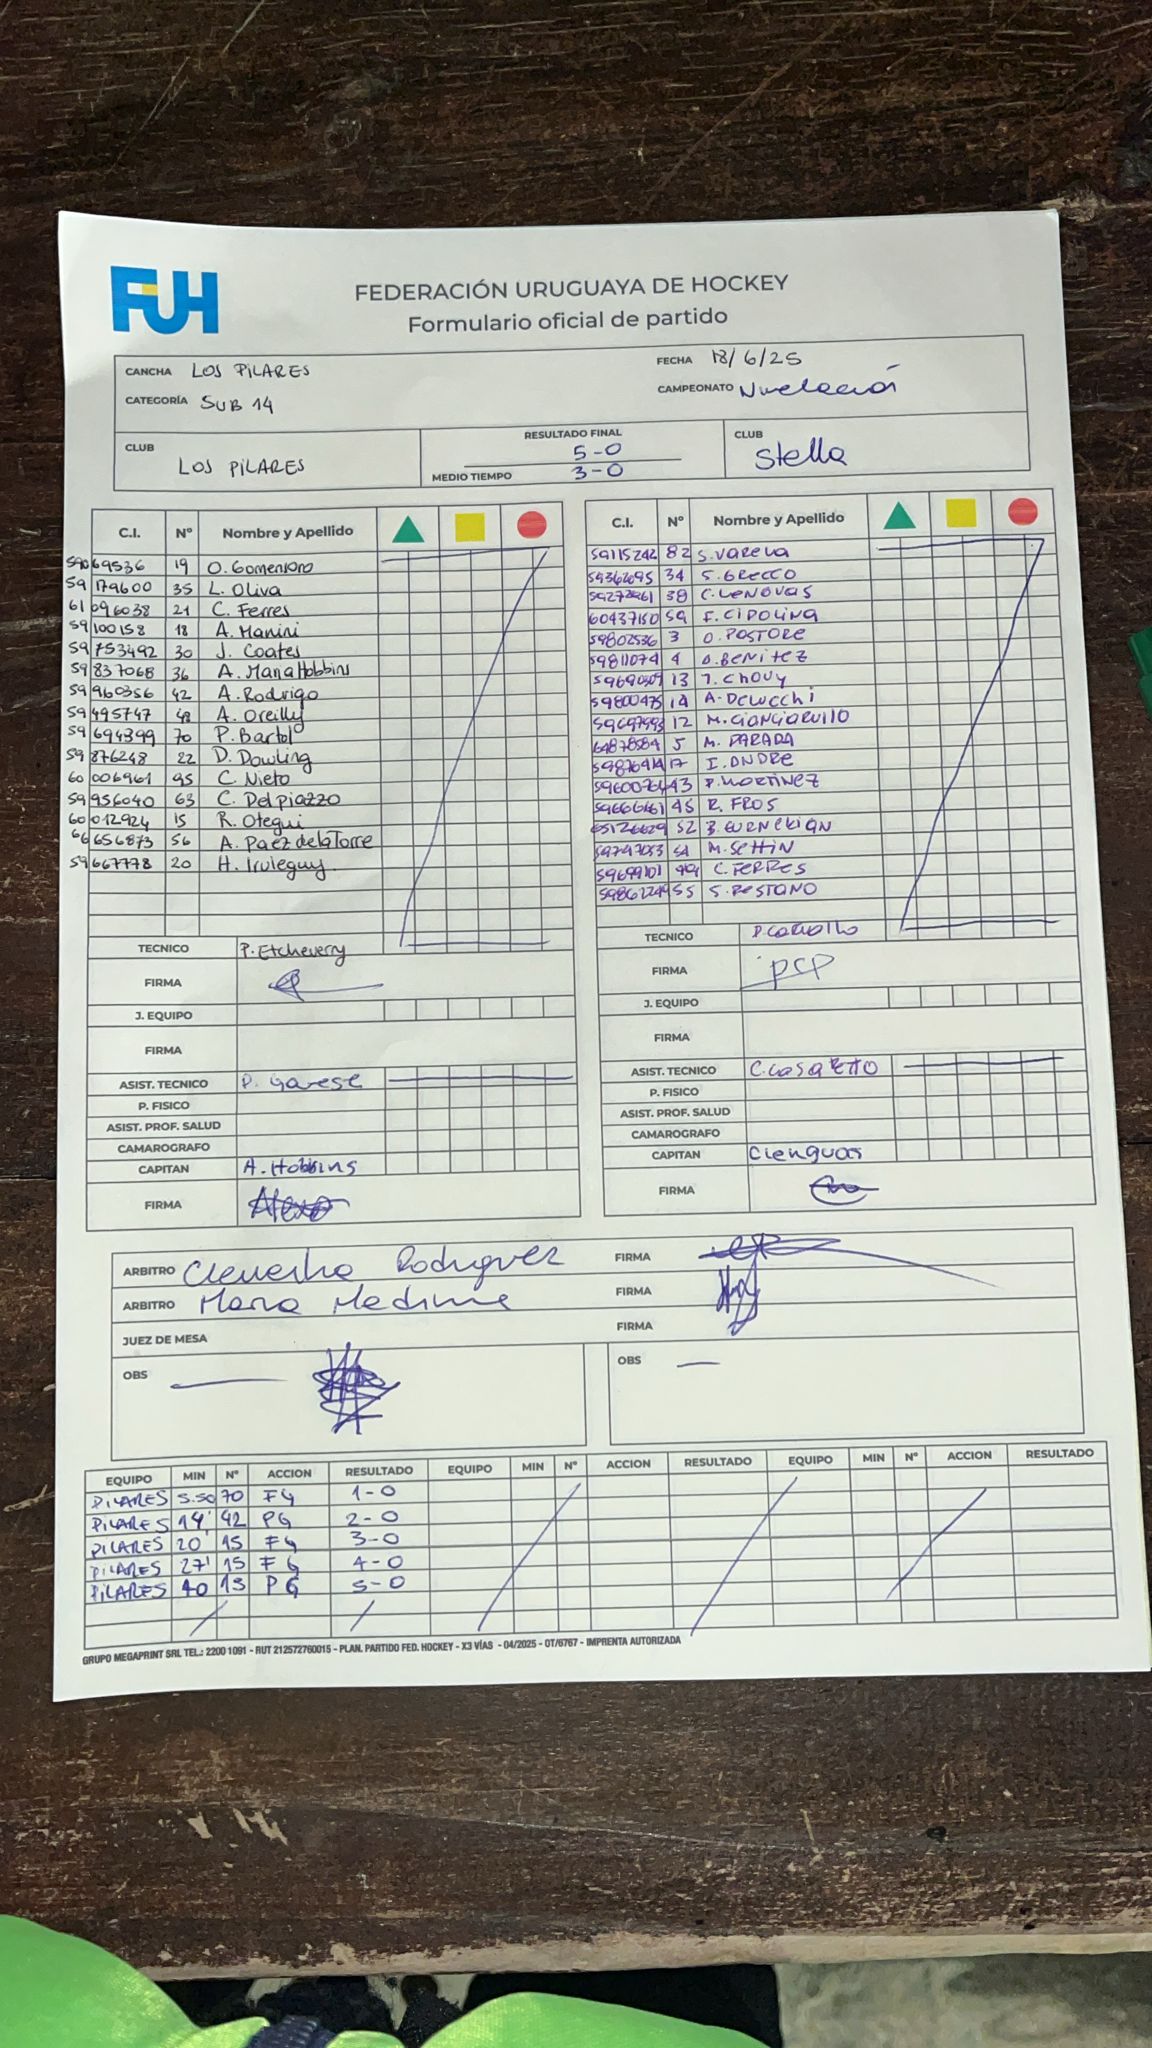 FUH
FEDERACIÓN URUGUAYA DE HOCKEY
Formulario oficial de partido
CANCHA LOS PILARES
FECHA 18/6/25
CATEGORÍA SUB 14
CAMPEONATO Nivelación
CLUB LOS PILARES
RESULTADO FINAL 5-0
MEDIO TIEMPO 3-0
CLUB Stella
C.I. Nº Nombre y Apellido
59069536 19 O. Gomensoro
59179600 35 L. Oliva
61096038 21 C. Ferres
59100158 18 A. Manini
59753492 30 J. Coates
59837068 36 A. Maria Hobbins
59960356 42 A. Rodrigo
59495747 48 A. Oreilly
59694399 70 P. Bartol
59876248 22 D. Dowling
60006961 95 C. Nieto
59956040 63 C. Delpiazzo
60012924 15 R. Otegui
656873 56 A. Paez de la Torre
59667778 20 H. Iruleguy
TECNICO P. Etcheverry
FIRMA
J. EQUIPO
FIRMA
ASIST. TECNICO P. Garese
P. FISICO
ASIST. PROF. SALUD
CAMAROGRAFO
CAPITAN A. Hobbins
FIRMA
C.I. Nº Nombre y Apellido
59115242 82 S. Varela
34 S. GRECCO
38
60437150 59 F. CIPOLINA
59802536 3 O. PASTORE
59811074 4 BENITEZ
13 CHOUY
59800475 14 A. Delucchi
12 M.
5 M. PARADA
17 I.
43 MARTINEZ
45 R. FROS
52
M. SETTIN
C. FERRES
55 S. RESTANO
TECNICO
FIRMA PCP
J. EQUIPO
FIRMA
ASIST. TECNICO C. CASARETTO
P. FISICO
ASIST. PROF. SALUD
CAMAROGRAFO
CAPITAN
FIRMA
ARBITRO Rodriguez FIRMA
ARBITRO Maria FIRMA
JUEZ DE MESA FIRMA
OBS
OBS
EQUIPO MIN Nº ACCION RESULTADO EQUIPO MIN Nº ACCION RESULTADO EQUIPO MIN Nº ACCION RESULTADO
PILARES 5.50 70 FG 1-0
PILARES 14' 42 PG 2-0
PILARES 20' 15 FG 3-0
PILARES 27' 15 FG 4-0
PILARES 40 13 PG 5-0
GRUPO MEGAPRINT SRL TEL.: 2200 1091 - RUT 212572760015 - PLAN. PARTIDO FED. HOCKEY - X3 VÍAS - 04/2025 - OT/6767 - IMPRENTA AUTORIZADA